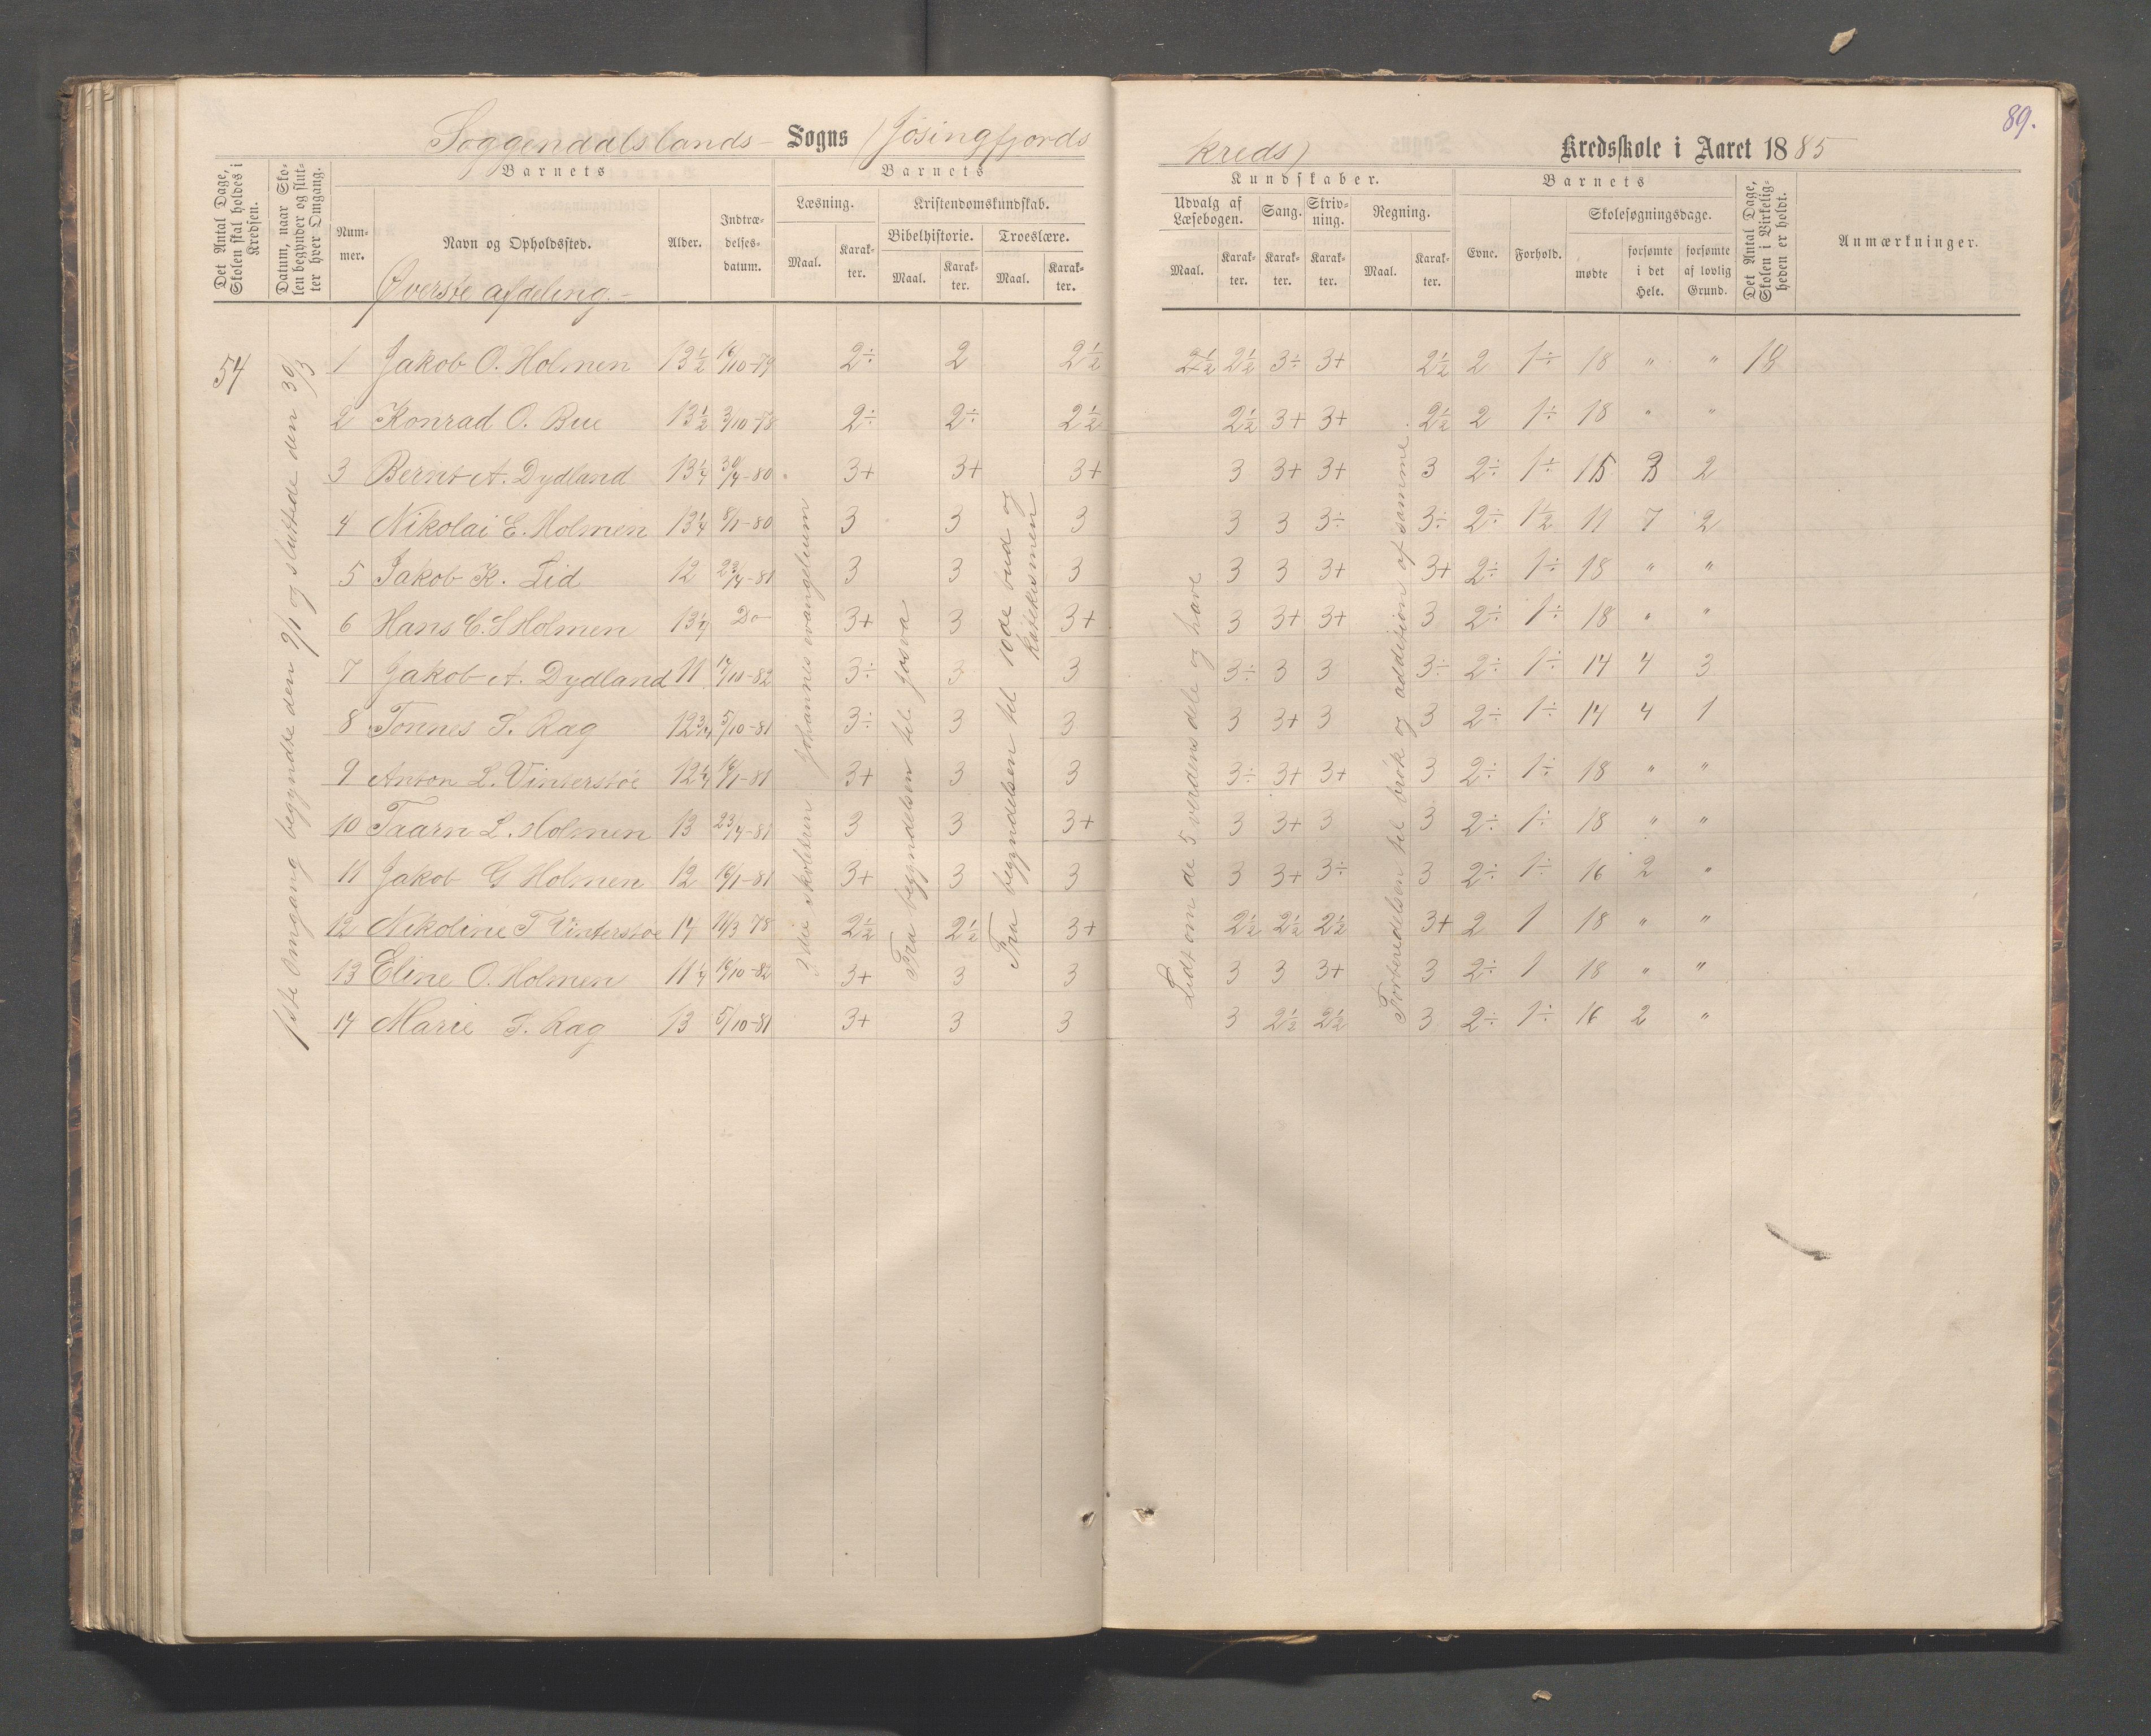 89.
Soggendalslands- Sogns (Jösingfjords kreds) Kredsskole i Aaret 1885
Det Antal Dage, Skolen skal holdes i Kredsen.
Datum, naar Skolen begynder og slutter hver Omgang.
Barnets
Nummer.
Navn og Opholdssted.
Alder.
Indtrædelsesdatum.
Barnets
Læsning.
Maal.
Karakter.
Kristendomskundskab.
Bibelhistorie.
Maal.
Karakter.
Troeslære.
Maal.
Karakter.
Kundskaber.
Udvalg af Læsebogen.
Maal.
Karakter.
Sang.
Karakter.
Skrivning.
Karakter.
Regning.
Maal.
Karakter.
Barnets
Evne.
Forhold.
Skolesøgningsdage.
mødte
forsømte i det Hele.
forsømte af lovlig Grund.
Det Antal Dage, Skolen i Virkeligheden er holdt.
Anmærkninger.
Øverste afdeling.-
54
1ste Omgang begyndte den 9/1 og sluttede den 30/3
1 Jakob O. Holmen 13½ 16/10-79 2÷ 2 2½ 2½ 2½ 3÷ 3+ 2½ 2 1÷ 18 " " 18
2 Konrad O. Bue 13½ 3/10-78 2÷ 2÷ 2½ 2½ 3+ 3+ 2½ 2 1÷ 18 " "
3 Bernt A. Dydland 13¼ 30/4-80 3+ 3+ 3+ 3 3+ 3+ 3 2÷ 1÷ 15 3 2
4 Nikolai E. Holmen 13¼ 8/1-80 3 3 3 3 3 3÷ 3÷ 2÷ 1½ 11 7 2
5 Jakob K. Lid 12 23/4-81 3 3 3 3 3 3+ 3+ 2÷ 1÷ 18 " "
6 Hans E. S Holmen 13¼ Do 3+ 3 3+ 3 3+ 3+ 3 2÷ 1÷ 18 " "
7 Jakob A. Dydland 11 17/10-82 3÷ 3 3 3÷ 3 3 3÷ 2÷ 1÷ 14 4 3
8 Tonnes S. Ræg 12¾ 5/10-81 3÷ 3 3 3 3+ 3 3 2÷ 1÷ 14 4 1
9 Anton L. Vinterstöe 12¼ 16/1-81 3+ 3 3 3÷ 3+ 3+ 3 2÷ 1÷ 18 " "
10 Taarn L. Holmen 13 23/4-81 3 3 3+ 3 3+ 3 3 2÷ 1÷ 18 " "
11 Jakob G Holmen 12 16/1-81 3+ 3 3 3 3+ 3÷ 3 2÷ 1÷ 16 2 "
12 Nikoline T Vinterstöe 14 11/3 78 2½ 2½ 3+ 2½ 2½ 2½ 3+ 2 1 18 " "
13 Eline O. Holmen 11¼ 16/10-82 3+ 3 3 3 3 3+ 3 2÷ 1 18 " "
14 Marie S. Ræg 13 5/10-81 3+ 3 3 3 2½ 2½ 3 2÷ 1÷ 16 2 "
Johannes evangelium
Fra begyndelsen til josva
Fra begyndelsen til 10de bud og katekismen
Lidt om de 5 verdens dele og have
til brök og addition af samme.